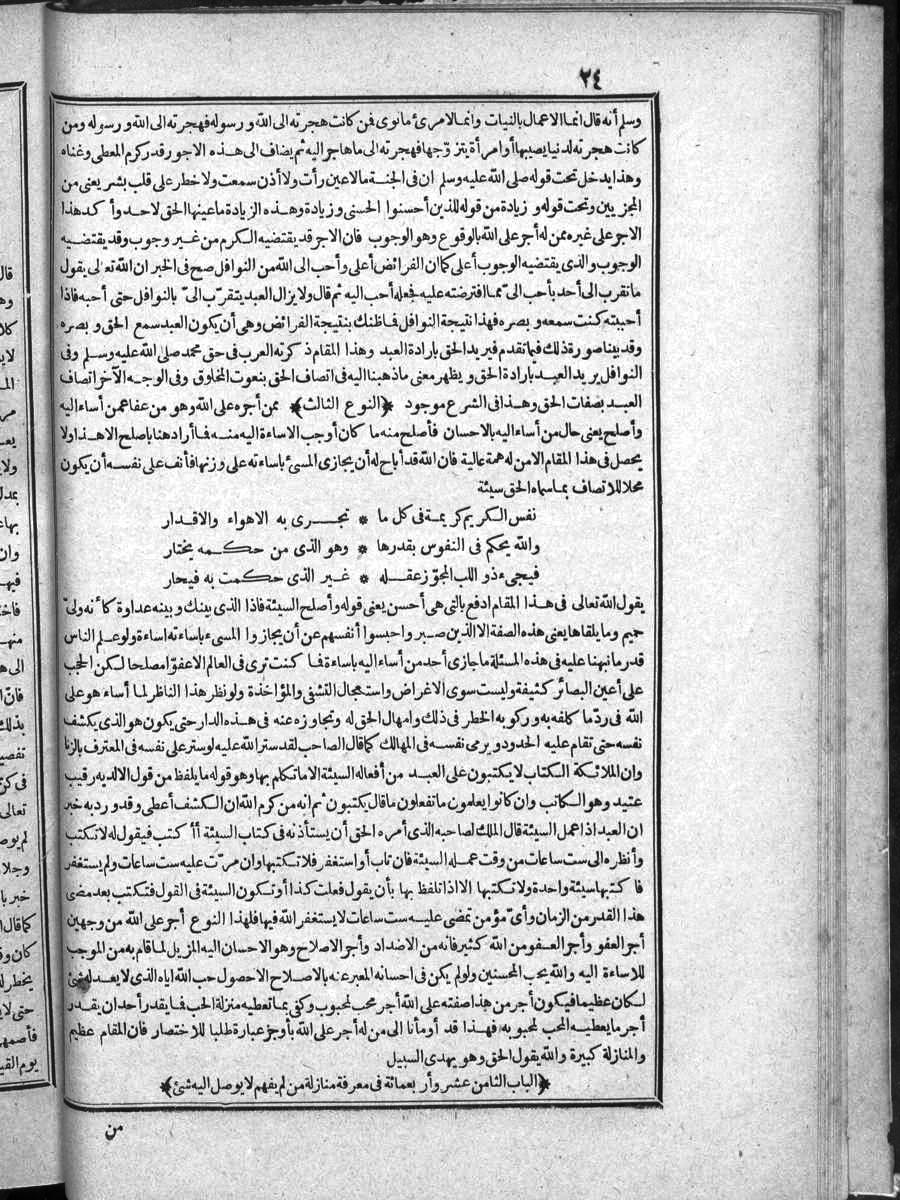 ٢٤
وسلم أنه قال انما الاعمال بالنيات وانما لامرئ مانوى فمن كانت هجرته الى الله ورسوله فهجرته الى الله ورسوله ومن
كانت هجرته لدنيا يصيبها أو امرأة يتزوجها فهجرته الى ما هاجر اليه ثم يضاف الى هذه الاجور قدر كرم المعطى وغناه
وهذا يدخل تحت قوله صلى الله عليه وسلم ان فى الجنة مالاعين رأت ولا أذن سمعت ولا خطر على قلب بشر يعنى من
المجزيين وتحت قوله وزيادة من قوله للذين أحسنوا الحسنى وزيادة وهذه الزيادة ماعينها الحق لاحد وأكد هذا
الاجر على غيره ممن له أجر على الله بالوقوع وهو الوجوب فان الاجر قد يقتضيه الكرم من غير وجوب وقد يقتضيه
الوجوب والذى يقتضيه الوجوب أعلى كما ان الفرائض أعلى وأحب الى الله من النوافل صح فى الخبر ان الله تعالى يقول
ما تقرب الى أحد بأحب الىّ مما افترضته عليه فجعله أحب اليه ثم قال ولا يزال العبد يتقرب الىّ بالنوافل حتى أحبه فاذا
أحببته كنت سمعه وبصره فهذا نتيجة النوافل فاظنك بنتيجة الفرائض وهى أن يكون العبد سمع الحق وبصره
وقد بينا صورة ذلك فيما تقدم فيريد الحق بارادة العبد وهذا المقام ذكرته العرب فى حق محمد صلى الله عليه وسلم وفى
النوافل يريد العبد بارادة الحق ويظهر معنى ما ذهبنا اليه فى اتصاف الحق بنعوت المخلوق وفى الوجه الآخر اتصاف
العبد بصفات الحق وهذا فى الشرع موجود ﴿النوع الثالث﴾ ممن أجره على الله وهو من عفا عمن أساء اليه
وأصلح يعنى حال من أساء اليه بالاحسان فأصلح منه ما كان أوجب الاساءة اليه منه فما أراد هنا باصلح الا هذا ولا
يحصل فى هذا المقام الا من له همة عالية فان الله قد أباح له أن يجازى المسئ باساءته على وزنها فأنف على نفسه أن يكون
محلا للاتصاف بما سماه الحق سيئة
نفس الكريم كريمة فى كل ما * تجرى به الاهواء والاقدار
والله يحكم فى النفوس بقدرها * وهو الذى من حكمه يختار
فيجىء ذو اللب المجوّز عقله * غير الذى حكمت به فيحار
يقول الله تعالى فى هذا المقام ادفع بالتى هى أحسن يعنى قوله وأصلح السيئة فاذا الذى بينك وبينه عداوة كأنه ولىّ
حميم وما يلقاها يعنى هذه الصفة الا الذين صبر واحبسوا أنفسهم عن أن يجازوا المسىء باساءته اساءة ولو علم الناس
قدر ما نبهنا عليه فى هذه المسئلة ما جازى أحد من أساء اليه باساءة فما كنت ترى فى العالم الاعفوّا مصلحا لكن الحجب
على أعين البصائر كثيفة وليست سوى الاغراض واستعجال التشفى والمؤاخذة ولو نظر هذا الناظر لما أساء هو على
الله فى ردّ ما كلفه به وركوبه الخطر فى ذلك وامهال الحق له وتجاوزه عنه فى هذه الدار حتى يكون هو الذى يكشف
نفسه حتى تقام عليه الحدود ويرمى نفسه فى المهالك كما قال الصاحب لقد ستر الله عليه لو ستر على نفسه فى المعترف بالزنا
وان الملائكة الكتاب لا يكتبون على العبد من أفعاله السيئة الا ما تكلم بها وهو قوله ما يلفظ من قول الا لديه رقيب
عتيد وهو الكاتب وان كانوا يعلمون ما تفعلون ما قال يكتبون ثم انه من كرم الله ان الكشف أعطى وقد ورد به خبر
ان العبد اذا عمل السيئة قال الملك لصاحبه الذى أمره الحق أن يستأذنه فى كتاب السيئة أأكتب فيقول له لا تكتب
وأنظره الى ست ساعات من وقت عمله السيئة فان تاب أو استغفر فلا تكتبها وان مرت عليه ست ساعات ولم يستغفر
فاكتبها سيئة واحدة ولا تكتبها الا اذا تلفظ بها بأن يقول فعلت كذا أو تكون السيئة فى القول فتكتب بعد مضى
هذا القدر من الزمان وأىّ مؤمن تمضى عليه ست ساعات لا يستغفر الله فيها فلهذا النوع أجر على الله من وجهين
أجر العفو وأجر العفو من الله كثير فانه من الاضداد وأجر الاصلاح وهو الاحسان اليه المزيل لما قام به من الموجب
للاساءة اليه والله يحب المحسنين ولو لم يكن فى احسانه المعبر عنه بالاصلاح الا حصول حب الله اياه الذى لا يعدله شئ
لكان عظيما فيكون أجر من هذا صفته على الله أجر محب لمحبوب وكفى بما تعطيه منزلة الحب فما يقدر أحد ان يقدر
أجر ما يعطيه المحب لمحبوبه فهذا قد أومأنا الى من له أجر على الله بأوجز عبارة طلبا للاختصار فان المقام عظيم
والمنازلة كبيرة والله يقول الحق وهو يهدى السبيل
﴿الباب الثامن عشر وأربعمائة فى معرفة منازلة من لم يفهم لا يوصل اليه شئ﴾
من